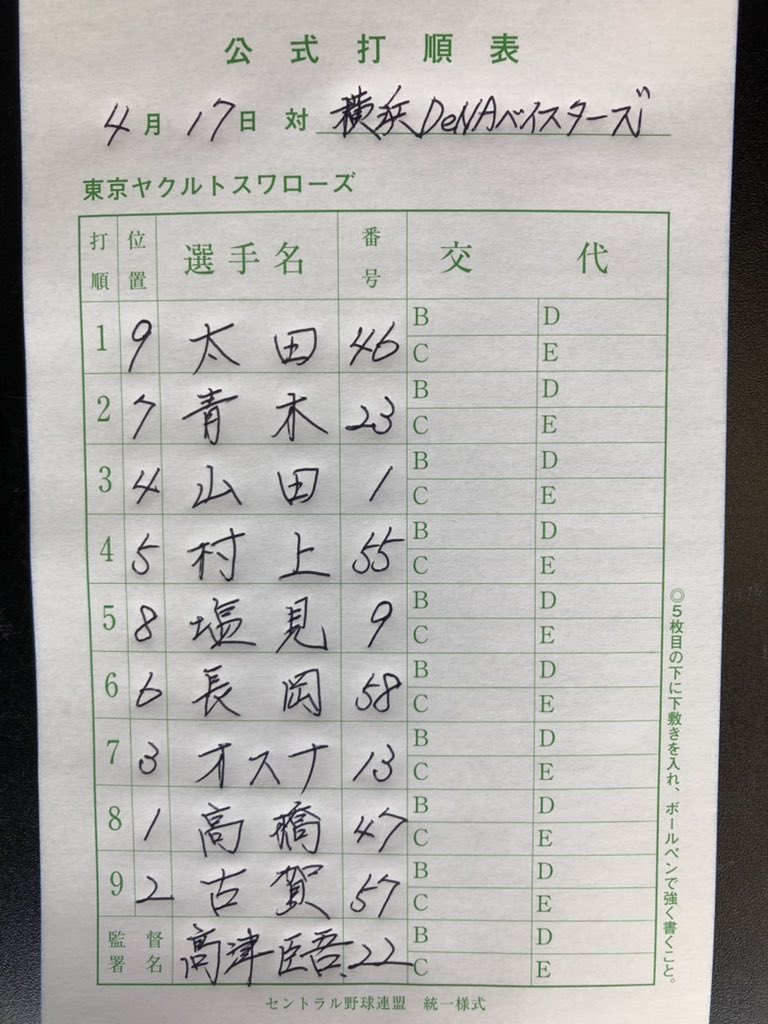 公式打順表
4月17日 対 横浜DeNAベイスターズ
東京ヤクルトスワローズ
打順 位置 選手名 番号 交代
1 9 太田 46 B D C E
2 7 青木 23 B D C E
3 4 山田 1 B D C E
4 5 村上 55 B D C E
5 8 塩見 9 B D C E
6 6 長岡 58 B D C E
7 3 オスナ 13 B D C E
8 1 高橋 47 B D C E
9 2 古賀 57 B D C E
監督署名 高津臣吾 22 B D C E
◎5枚目の下に下敷きを入れ、ボールペンで強く書くこと。
セントラル野球連盟 統一様式